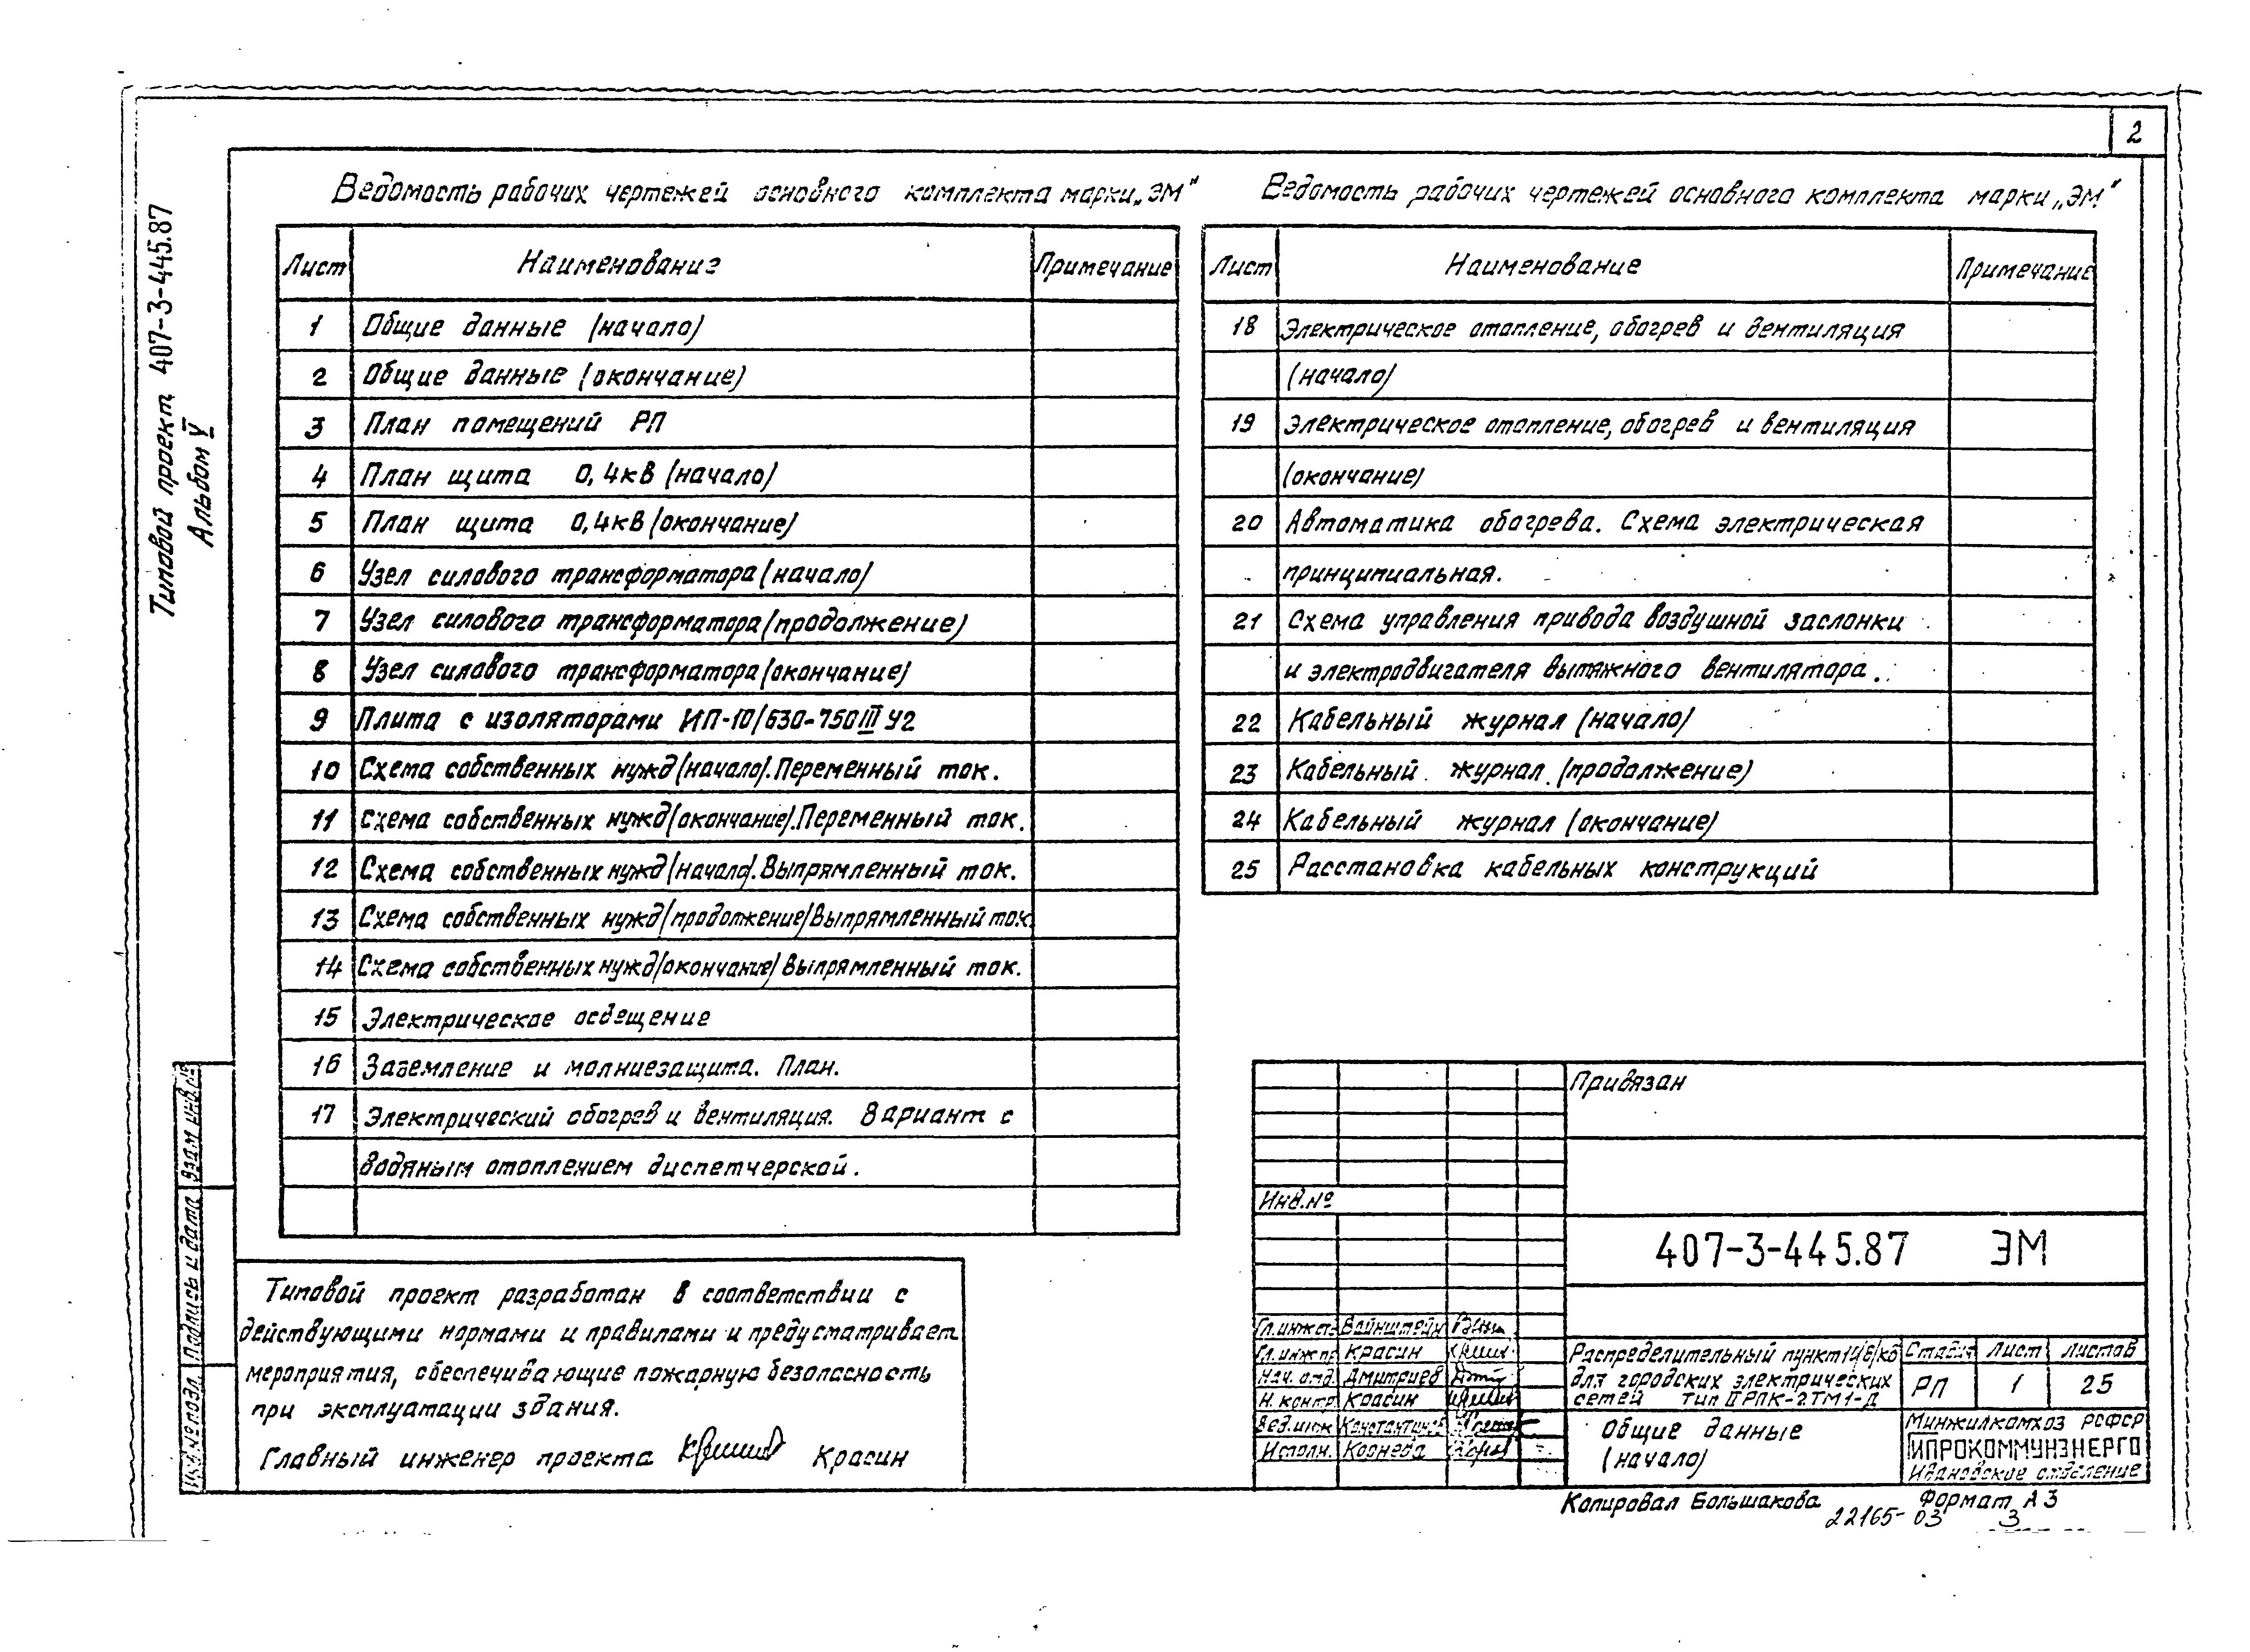 2
Типовой проект 407-3-445.87
Альбом V
Ведомость рабочих чертежей основного комплекта марки „ЭМ"
Лист Наименование Примечание
1 Общие данные (начало)
2 Общие данные (окончание)
3 План помещений РП
4 План щита 0,4кВ (начало)
5 План щита 0,4кВ (окончание)
6 Узел силового трансформатора (начало)
7 Узел силового трансформатора (продолжение)
8 Узел силового трансформатора (окончание)
9 Плита с изоляторами ИП-10/630-750 III У2
10 Схема собственных нужд (начало). Переменный ток.
11 Схема собственных нужд (окончание). Переменный ток.
12 Схема собственных нужд (начало). Выпрямленный ток.
13 Схема собственных нужд (продолжение) Выпрямленный ток.
14 Схема собственных нужд (окончание) Выпрямленный ток.
15 Электрическое освещение
16 Заземление и молниезащита. План.
17 Электрический обогрев и вентиляция. Вариант с
водяным отоплением диспетчерской.
Ведомость рабочих чертежей основного комплекта марки „ЭМ"
Лист Наименование Примечание
18 Электрическое отопление, обогрев и вентиляция
(начало)
19 Электрическое отопление, обогрев и вентиляция
(окончание)
20 Автоматика обогрева. Схема электрическая
принципиальная.
21 Схема управления привода воздушной заслонки
и электродвигателя вытяжного вентилятора.
22 Кабельный журнал (начало)
23 Кабельный журнал (продолжение)
24 Кабельный журнал (окончание)
25 Расстановка кабельных конструкций
Типовой проект разработан в соответствии с
действующими нормами и правилами и предусматривает
мероприятия, обеспечивающие пожарную безопасность
при эксплуатации здания.
Главный инженер проекта Красин
Взам инв №
Подпись и дата
Инв.№ подл.
Привязан
Инв.№
407-3-445.87 ЭМ
Гл.инж Вайнштейн
Гл.инж.пр Красин
Нач. отд. Дмитриев
Н. контр. Красин
Вед.инж
Исполн. Корнева
Распределительный пункт 10(6)кв
для городских электрических
сетей тип II РПК-2ТМ1-Д
Стадия Лист Листов
РП 1 25
Общие данные
(начало)
Минжилкомхоз РСФСР
ГИПРОКОММУНЭНЕРГО
Ивановское отделение
Копировал Большакова Формат А3
22165-03 3